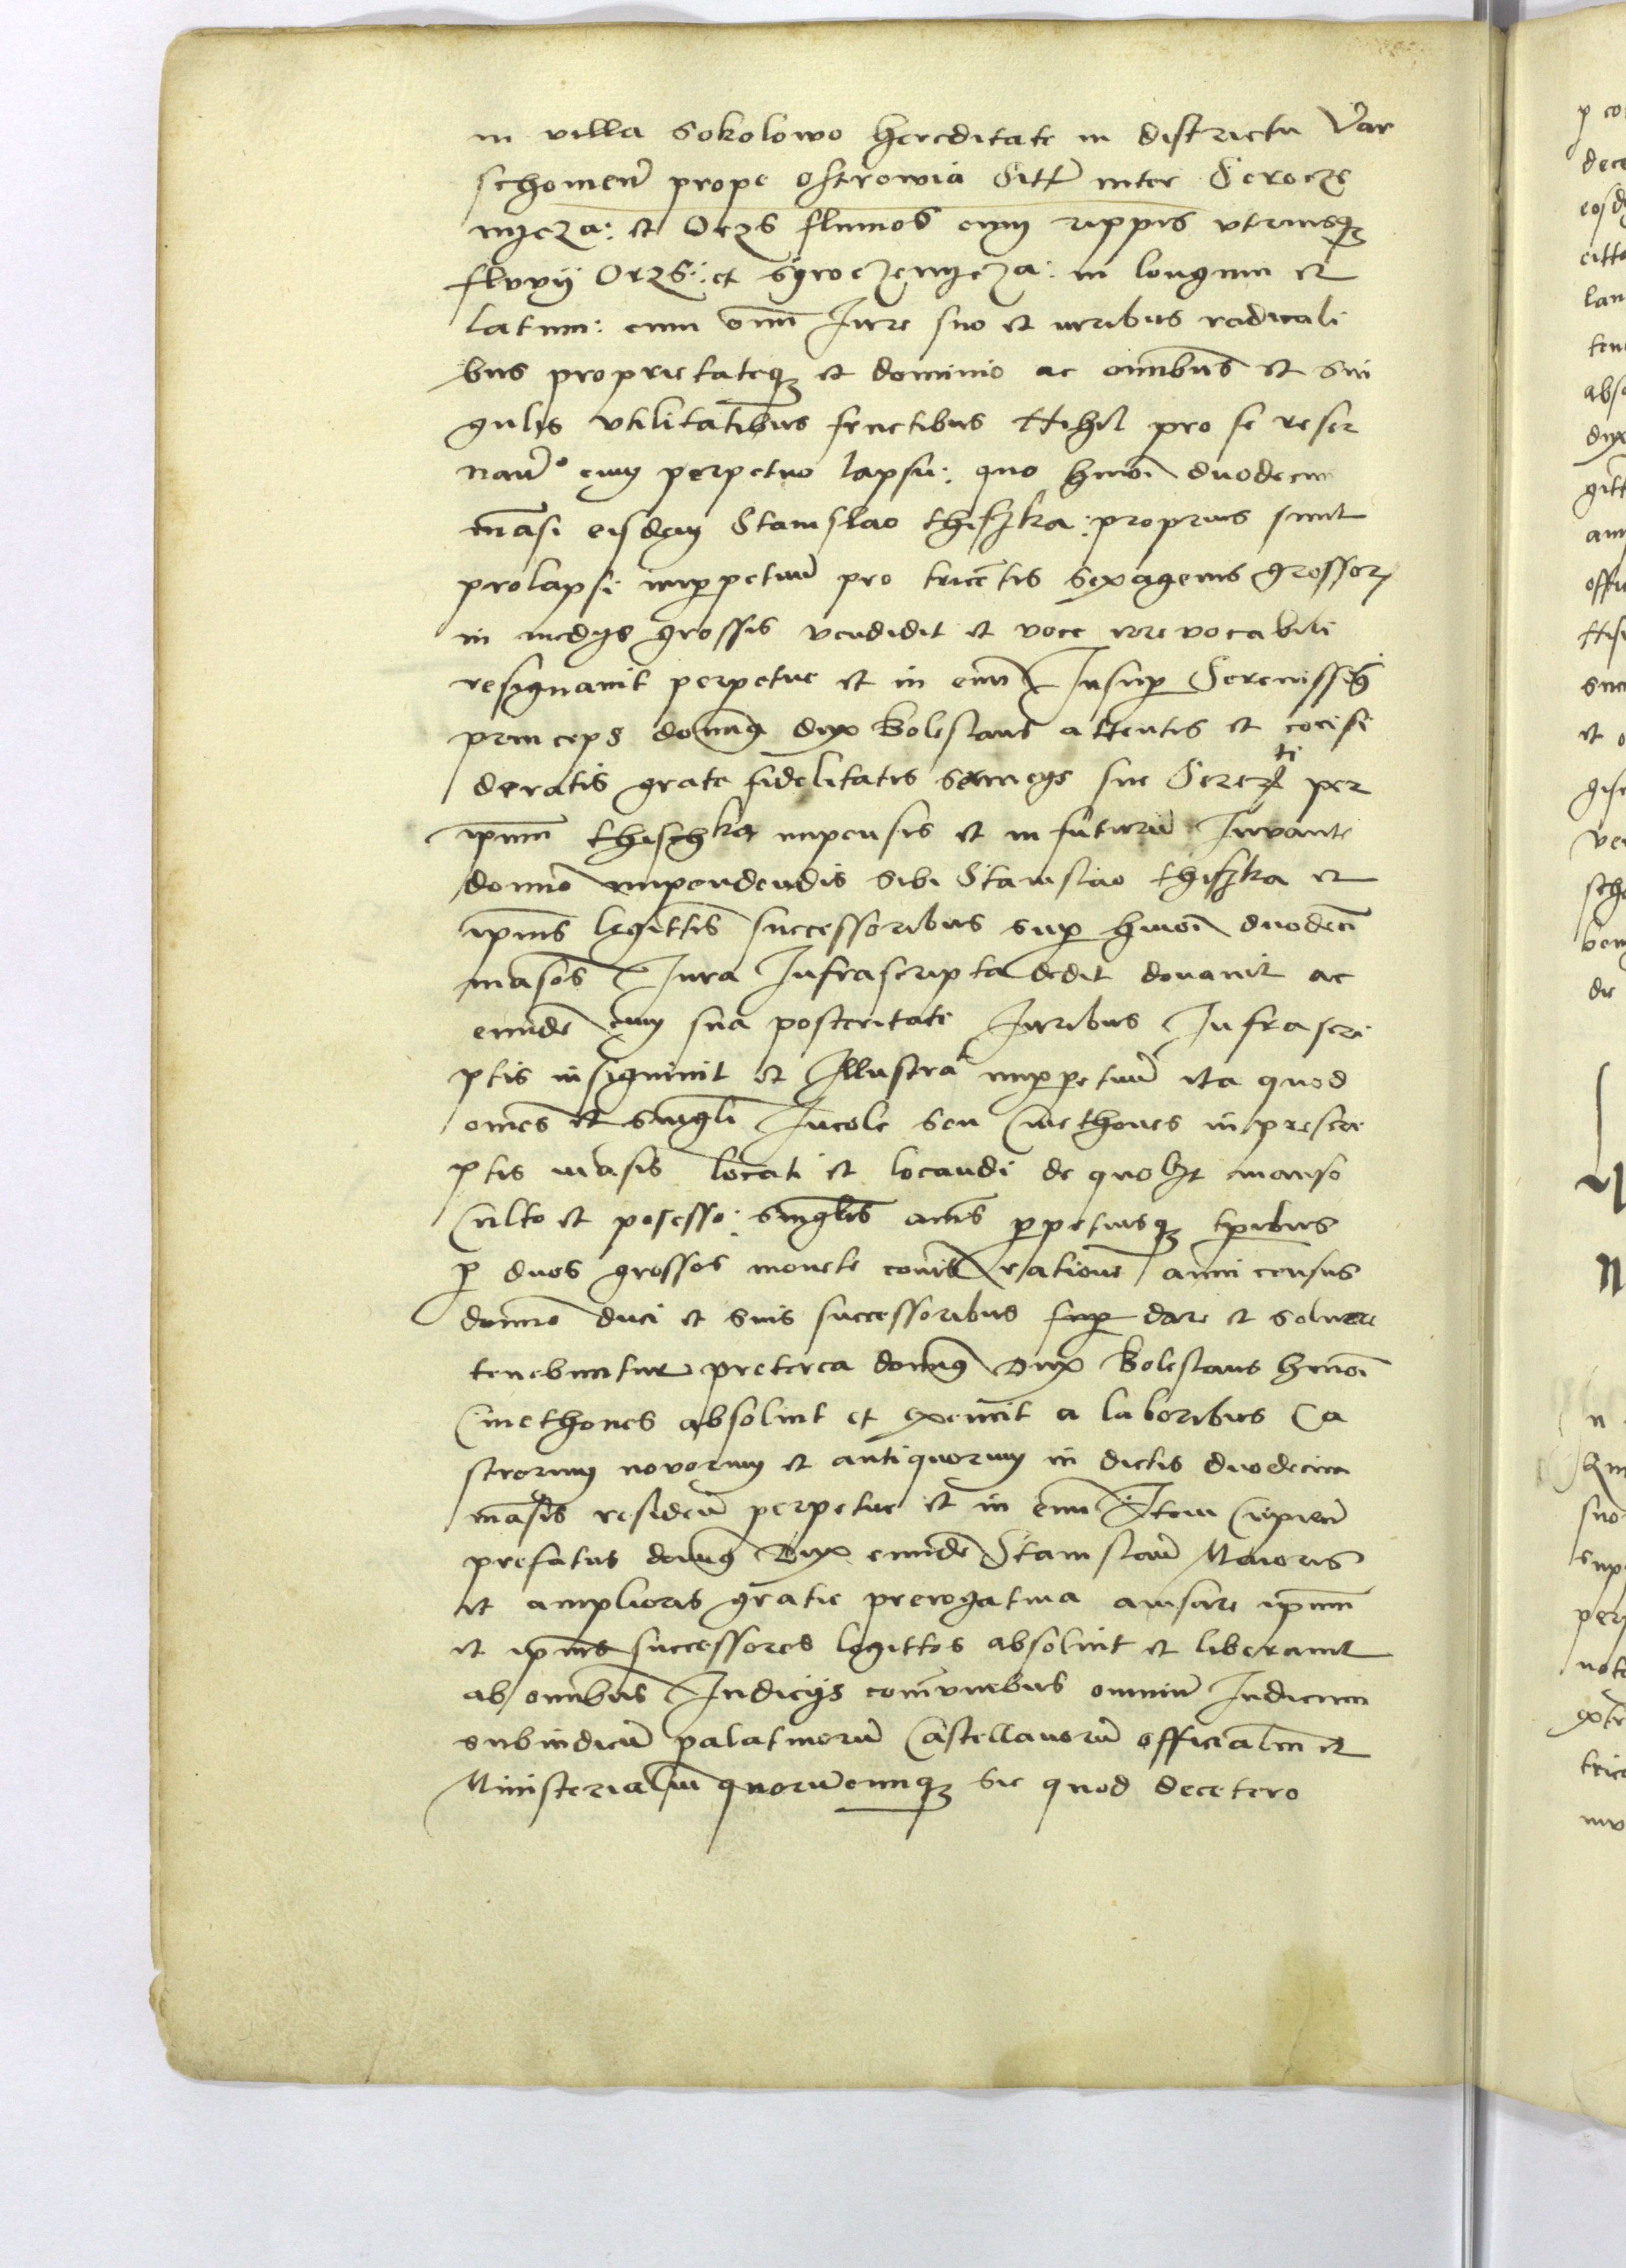 in villa Sokolowo hereditate in districtu Var
schouien̄ prope ostrowiā Sitt̄ inter Seroczs
myeza: et Orzs fluuios cum rippis vtriusq3
fluvij Orzs: et Syroczemyeza: in longum et
latum: cum om̄i Jure suo et iuribus radicali
bus proprietateq3 et dominio ac omnibus et sin
gulis vtilitatibus fructibus Nihil pro se reser
nau° cum perpetuo lapsu: quo hmōi duodecim
māsi eisdem Stanislao thiszka: proprius sunt
prolapsi imperpetuū pro tricētis sexagenis grossor
in medijs grossis vendidit et voce irrevocabili
resignauit perpetue et in euū Insup Serenissi9
princeps domin9 dux Bolesla9 attentis et cōsi
deratis grate fidelitatis seruicys sue Sereti per
ipsum thischka impensis et in futurū Juvante
domino impendendis sibi Stanislao thiszka et
ipius legittis successoribus sup hmōi duodeci
masos Jura Infrascripta dedit donauit ac
eundē cum sua posteritate Juribus Infrascri
ptis insigniuit et Illustrat imperpetuū ita quod
omēs et singli Incole seu Cmethones in prescri
ptis masis locati et locandi de quolzt manso
Culto et posesso: singlis anīs perpetuisq3 tpribus
p duos grossos monete cois ratione anni census
domino duci et suis successoribus sup dare et soluere
tenebuntur preterea domin9 Dux Boleslaus hmōi
Cmethones absoluit et exemit a laboribus Ca
strorum novorum et antiquorum in dictis duodecim
māsis residen̄ perpetue et in euū Item Cupien̄
prefatus domin9 Dux eundē Stanislaū Maioris
et amplioris gratie prerogatiua auisare ipum
et ipius successores legittos absoluit et liberauit
ab omnibus Judicijs comunebus omniū Judicum
subiudicū palatinorū Castellanorū officialm et
Ministerialm quorūcunq3 sic quod decetero